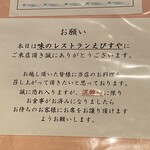 お願い
本日は味のレストランえびすやに
ご来店頂き誠にありがとうございます。
お越し頂いた皆様に当店のお料理を
召し上がって頂きたいと思いますので、
誠に恐れ入りますが、混雑時に限り
お食事がお済みになりましたら
お待ちのお客様にお席をお譲り頂けます
ようお願いします。